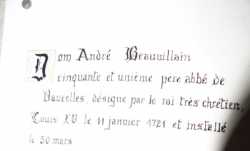 Dom André Beauvillain
cinquante et unième père abbé de
Vaucelles désigné par le roi très chrétien,
Louis XV le 11 janvier 1721 et installé
le 30 mars